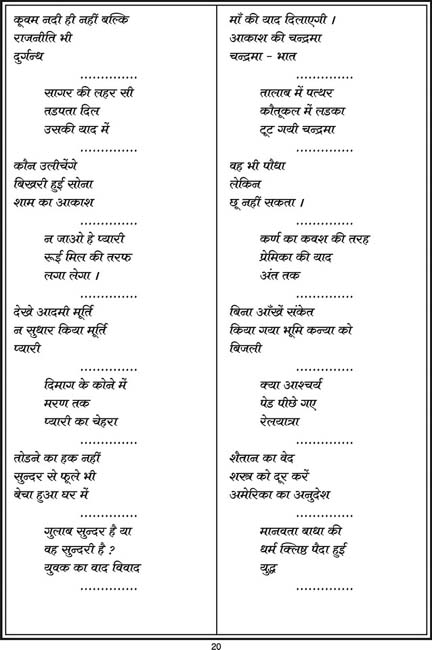 कूवम नदी ही नहीं बल्कि
राजनीति भी
दुर्गन्ध
..............
सागर की लहर सी
तडपता दिल
उसकी याद में
..............
कौन उलीचेंगे
बिखरी हुई सोना
शाम का आकाश
..............
न जाओ हे प्यारी
रूई मिल की तरफ
लगा लेगा ।
..............
देखे आदमी मूर्ति
न सुधार किया मूर्ति
प्यारी
..............
दिमाग के कोने में
मरण तक
प्यारी का चेहरा
..............
तोडने का हक नहीं
सुन्दर से फूले भी
बेचा हुआ घर में
..............
गुलाब सुन्दर है या
वह सुन्दरी है ?
युवक का वाद विवाद
..............
माँ की याद दिलाएगी ।
आकाश की चन्द्रमा
चन्द्रमा - भात
..............
तालाब में पत्थर
कौतूकल में लडका
टूट गयी चन्द्रमा
..............
वह भी पौधा
लेकिन
छू नहीं सकता ।
..............
कर्ण का कवश की तरह
प्रेमिका की याद
अंत तक
..............
बिना आँखें संकेत
किया गया भूमि कन्या को
बिजली
..............
क्या आश्चर्य
पेड पीछे गए
रेलयात्रा
..............
शैतान का वेद
शस्त्र को दूर करें
अमेरिका का अनुदेश
..............
मानवता बाधा की
धर्म क्लिष्ठ पैदा हुई
युद्ध
..............
20